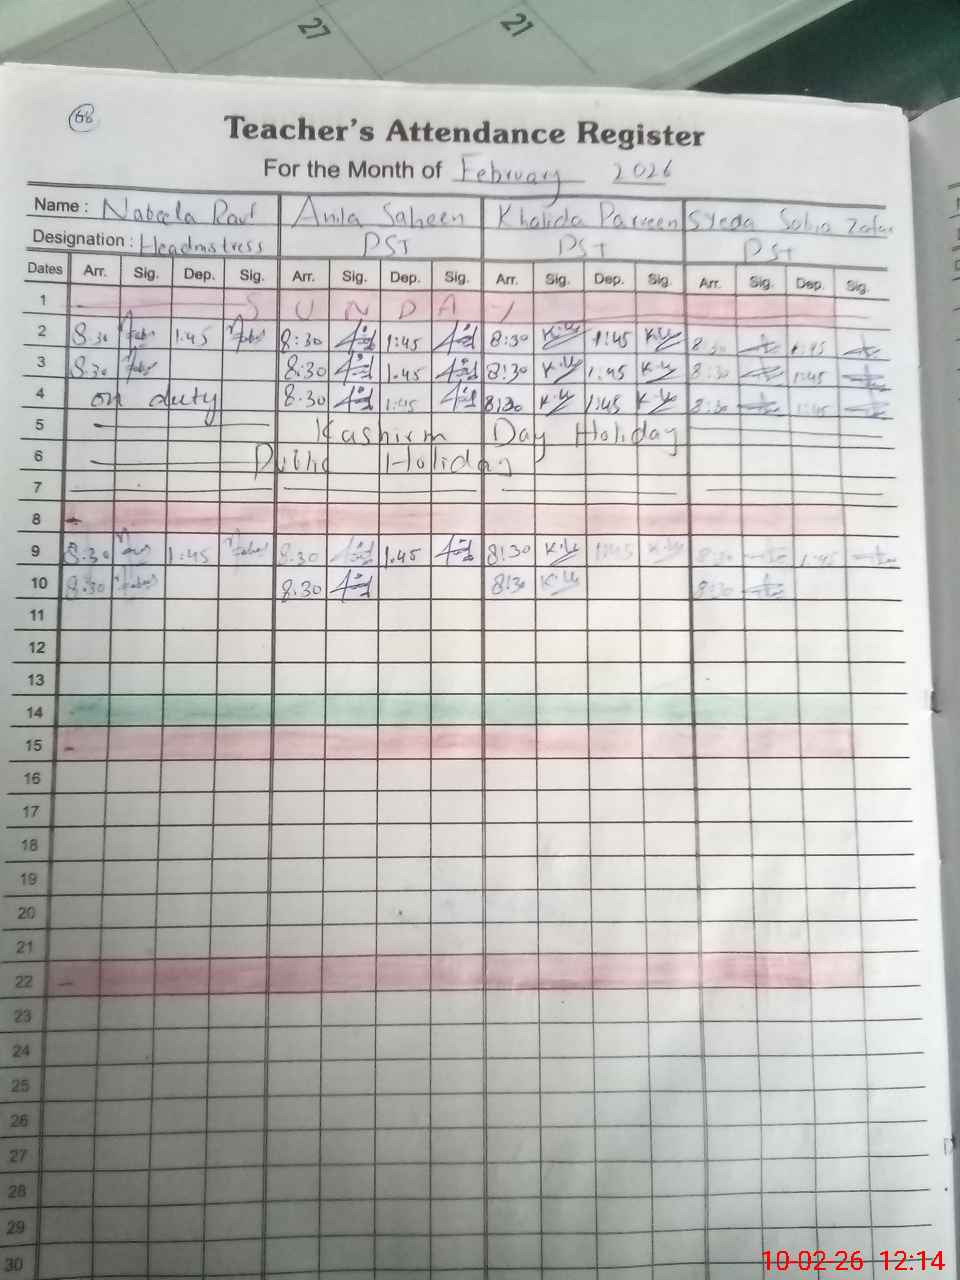 27 27
68
Teacher's Attendance Register
For the Month of February 2026
Name : Nabeela Rauf Anila Saheen Khalida Parveen Syeda Sobia Zafar
Designation : Headmistress PST PST PST
Dates Arr. Sig. Dep. Sig. Arr. Sig. Dep. Sig. Arr. Sig. Dep. Sig. Arr. Sig. Dep. Sig.
1 S U N D A Y
2 8:30 1:45 8:30 1:45 8:30 K.U 1:45 K.U 8:30 1:45
3 8:30 8:30 1:45 8:30 K.U 1:45 K.U 8:30 1:45
4 on duty 8:30 1:45 8:30 K.U 1:45 K.U 8:30 1:45
5 Kashirm Day Holiday
6 Public Holiday
7
8
9 8:30 1:45 8:30 1:45 8:30 K.U 1:45 K.U 8:30 1:45
10 8:30 8:30 8:30 K.U 8:30
11
12
13
14
15
16
17
18
19
20
21
22
23
24
25
26
27
28
29
30
10-02-26 12:14